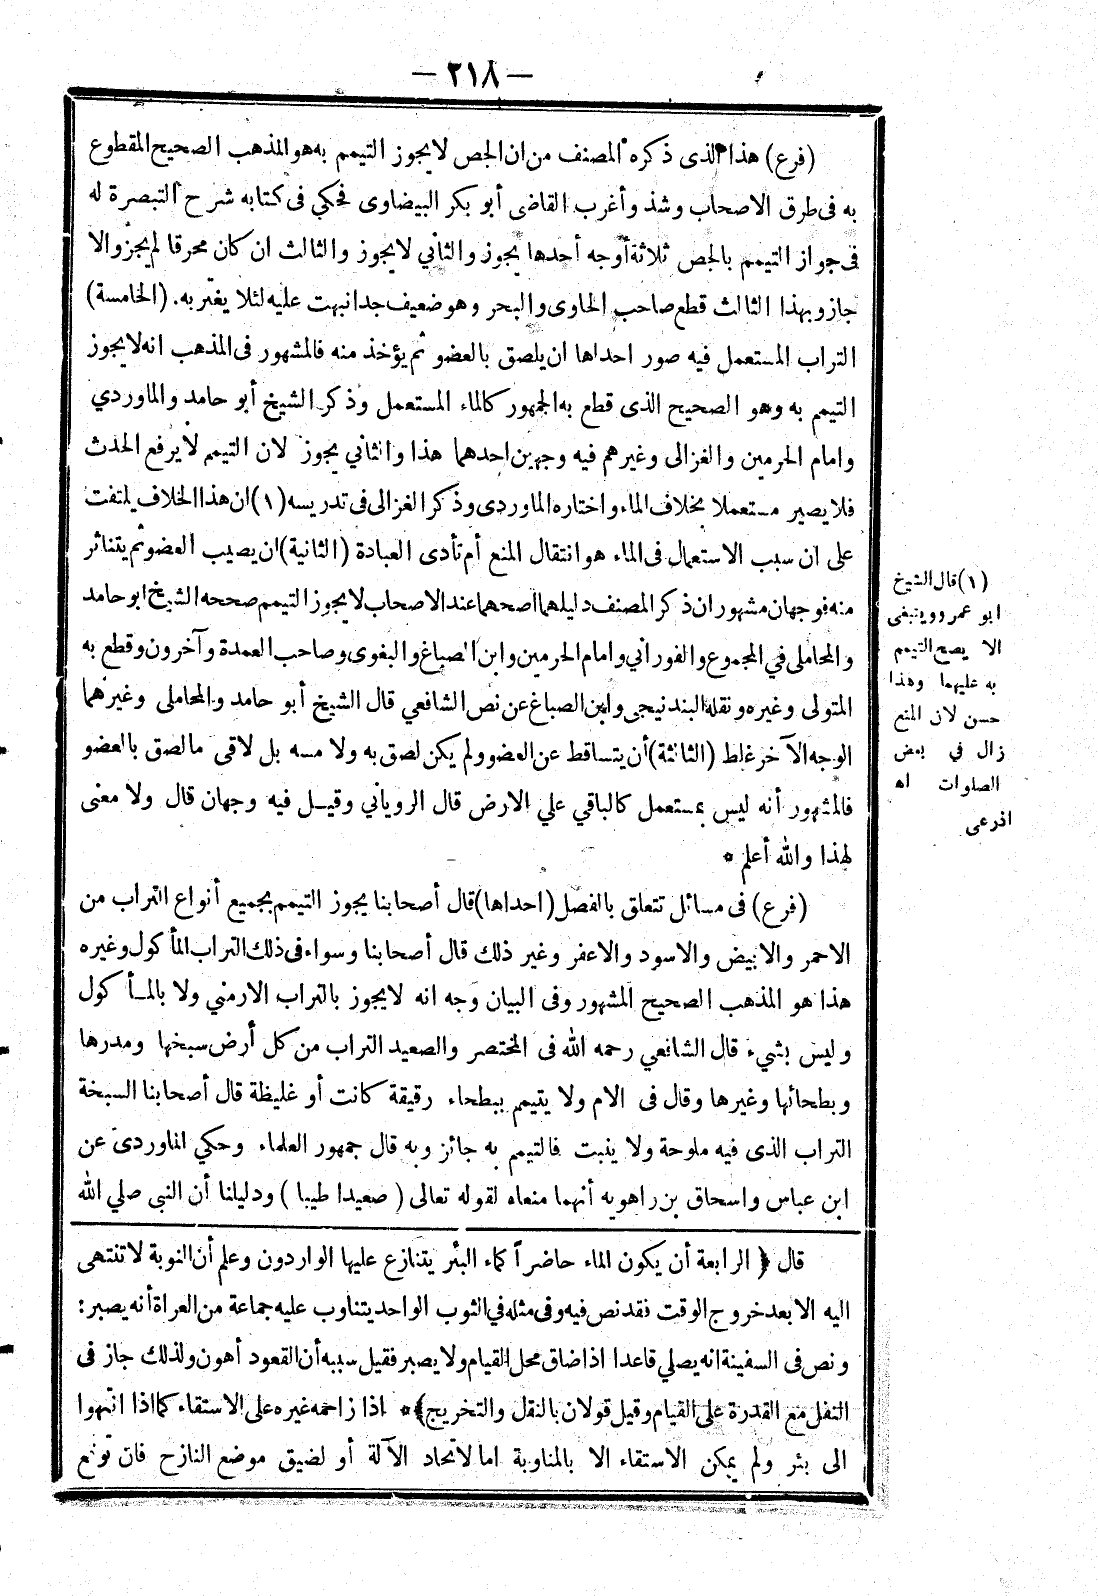 — ٢١٨ —
(فرع) هذا الذى ذكره المصنف من ان الجص لا يجوز التيمم به هو المذهب الصحيح المقطوع
به فى طرق الاصحاب وشذ وأغرب القاضى أبو بكر البيضاوى فحكي فى كتابه شرح التبصرة له
فى جواز التيمم بالجص ثلاثة أوجه أحدها يجوز والثاني لا يجوز والثالث ان كان محرقا لم يجز والا
جاز وبهذا الثالث قطع صاحب الحاوى والبحر وهو ضعيف جدا نبهت عليه لئلا يغتر به. (الخامسة)
التراب المستعمل فيه صور احداها ان يلصق بالعضو ثم يؤخذ منه فالمشهور فى المذهب انه لا يجوز
التيمم به وهو الصحيح الذى قطع به الجمهور كالماء المستعمل وذكر الشيخ أبو حامد والماوردي
وامام الحرمين والغزالى وغيرهم فيه وجهين احدهما هذا والثاني يجوز لان التيمم لا يرفع الحدث
فلا يصير مستعملا بخلاف الماء واختاره الماوردى وذكر الغزالى فى تدريسه (١) ان هذا الخلاف يلتفت
على ان سبب الاستعمال فى الماء هو انتقال المنع أم تأدى العبادة (الثانية) ان يصيب العضو ثم يتناثر
منه فوجهان مشهوران ذكر المصنف دليلهما اصحهما عند الاصحاب لا يجوز التيمم صححه الشيخ ابو حامد
والمحاملى في المجموع والفوراني وامام الحرمين وابن الصباغ والبغوى وصاحب العمدة وآخرون وقطع به
المتولى وغيره ونقله البندنيجى وابن الصباغ عن نص الشافعي قال الشيخ أبو حامد والمحاملى وغيرهما
الوجه الآخر غلط (الثالثة) أن يتساقط عن العضو ولم يكن لصق به ولا مسه بل لاقى ما لصق بالعضو
فالمشهور أنه ليس بمستعمل كالباقي علي الارض قال الروياني وقيل فيه وجهان قال ولا معنى
لهذا والله أعلم *
(فرع) فى مسائل تتعلق بالفصل (احداها) قال أصحابنا يجوز التيمم بجميع أنواع التراب من
الاحمر والابيض والاسود والاعفر وغير ذلك قال أصحابنا وسواء فى ذلك التراب المأكول وغيره
هذا هو المذهب الصحيح المشهور وفى البيان وجه انه لا يجوز بالتراب الارمني ولا بالمأكول
وليس بشيء قال الشافعي رحمه الله فى المختصر والصعيد التراب من كل أرض سبخها ومدرها
وبطحائها وغيرها وقال فى الام ولا يتيمم ببطحاء رقيقة كانت أو غليظة قال أصحابنا السبخة
التراب الذى فيه ملوحة ولا ينبت فالتيمم به جائز وبه قال جمهور العلماء وحكي الماوردى عن
ابن عباس واسحاق بن راهويه أنهما منعاه لقوله تعالى ( صعيدا طيبا ) ودليلنا أن النبى صلي الله
(١) قال الشيخ
ابو عمرو وينبغى
الا يصح التيمم
به عليهما وهذا
حسن لان المنع
زال في بعض
الصلوات اه
اذرعى
قال ﴿ الرابعة أن يكون الماء حاضراً كماء البئر يتنازع عليها الواردون وعلم أن النوبة لا تنتهى
اليه الا بعد خروج الوقت فقد نص فيه وفى مثله في الثوب الواحد يتناوب عليه جماعة من العراة أنه يصبر:
ونص فى السفينة انه يصلي قاعدا اذا ضاق محل القيام ولا يصبر فقيل سببه أن القعود أهون ولذلك جاز فى
النفل مع القدرة على القيام وقيل قولان بالنقل والتخريج ﴾ * اذا زاحمه غيره على الاستقاء كما اذا انتهوا
الى بئر ولم يمكن الاستقاء الا بالمناوبة اما لاتحاد الآلة أو لضيق موضع النازح فان توقع